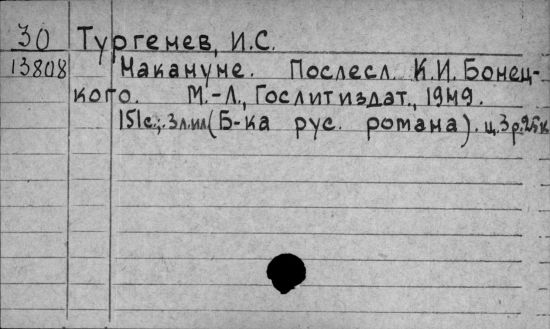 30 Тургенев, И.С.
13808 Накануне. Послесл. К.И. Бонец-
кого. М.-Л., Гослитиздат., 1949.
151с.; 3л.ил (Б-ка рус. романа). ц. 3р.25к